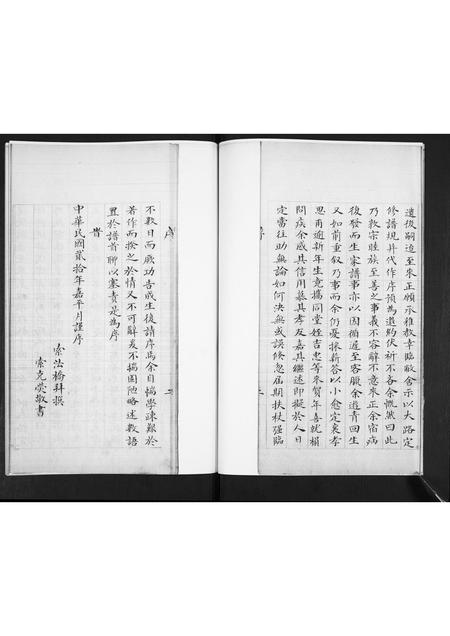 遺後嗣迨至來正頗承稚教幸臨敝舍示以大路定
修譜規并代作序預為道駒伏祈不吝余慨然曰此
乃敦宗睦族至善之事義不容辭不意來正余宿病
復發而生家譜事亦以因循遲至客臘余遊青回生
又如前重叙乃事而余仍憂採薪答以小愈定裏孝
思甫逾新年生竟攜同堂姪吉忠等來賀年喜就榻
問疾余感其信用慕其孝友嘉其繼述即擬於人日
定當往助無論如何決無或誤倏忽屆期扶杖強臨
序
二
不數日而厥功告成生復請序焉余自愧學疎艱於
著作而揆之於情又不可辭爰不揣固陋略述數語
置於譜首聊以塞責是為序
時
中華民國貳拾年嘉平月謹序
索法橋拜撰
索克棠敬書